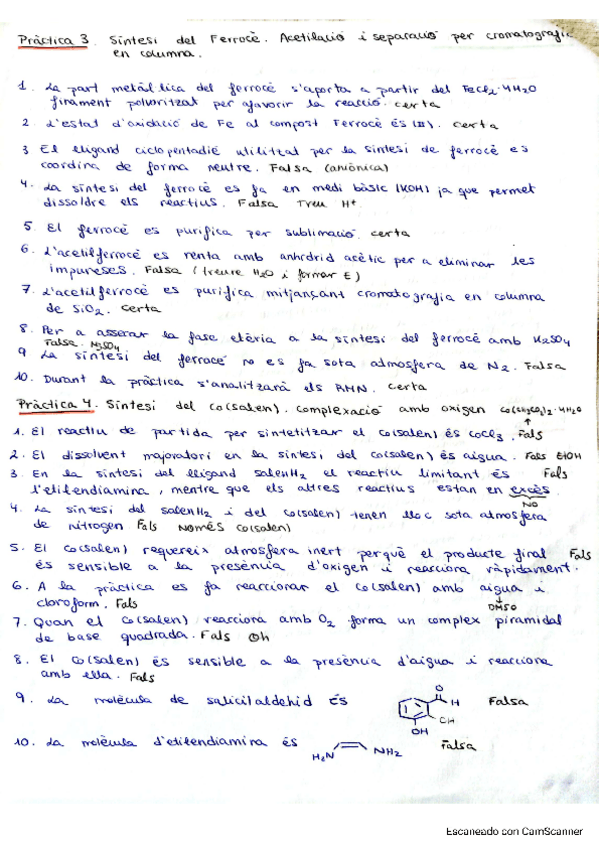 Pràctica 3. Síntesi del Ferrocè. Acetilació i separació per cromatografia
en columna.
1. La part metàl·lica del ferrocè s'aporta a partir del FeCl2·4H2O
finament polvoritzat per afavorir la reacció. certa
2. L'estat d'oxidació de Fe al compost Ferrocè és (II). certa
3 El lligand ciclopentadiè utilitzat per la síntesi de ferrocè es
coordina de forma neutre. Falsa (aniònica)
4. La síntesi del ferrocè es fa en medi bàsic (KOH) ja que permet
dissoldre els reactius. Falsa Treu H+
5. El ferrocè es purifica per sublimació. certa
6. L'acetilferrocè es renta amb anhídrid acètic per a eliminar les
impureses. Falsa (treure H2O i formar E)
7. L'acetilferrocè es purifica mitjançant cromatografia en columna
de SiO2. Certa
8. Per a assecar la fase etèria a la síntesi del ferrocè amb H2SO4
Falsa.
9 La síntesi del ferrocè no es fa sota atmosfera de N2. Falsa
10. Durant la pràctica s'analitzarà els RMN. Certa
Pràctica 4. Síntesi del Co(salen). Complexació amb oxigen Co(CH3CO2)2·4H2O
1. El reactiu de partida per sintetitzar el Co(salen) és CoCl2. Fals
2. El dissolvent majoritari en la síntesi del Co(salen) és aigua. Fals EtOH
3. En la síntesi del lligand salenH2 el reactiu limitant és Fals
l'etilendiamina, mentre que els altres reactius estan en excès.
NO
4. La síntesi del salenH2 i del Co(salen) tenen lloc sota atmosfera
de nitrogen Fals Només Co(salen)
5. El Co(salen) requereix atmosfera inert perquè el producte final Fals
és sensible a la presència d'oxigen i reacciona ràpidament.
6. A la pràctica es fa reaccionar el Co(salen) amb aigua i
cloroform. Fals
DMSO
7. Quan el Co(salen) reacciona amb O2 forma un complex piramidal
de base quadrada. Fals Oh
8. El Co(salen) és sensible a la presència d'aigua i reacciona
amb ella. Fals
9. La molècula de salicilaldehid és Falsa
O
H
OH
10. La molècula d'etilendiamina és Falsa
H2N NH2
Escaneado con CamScanner